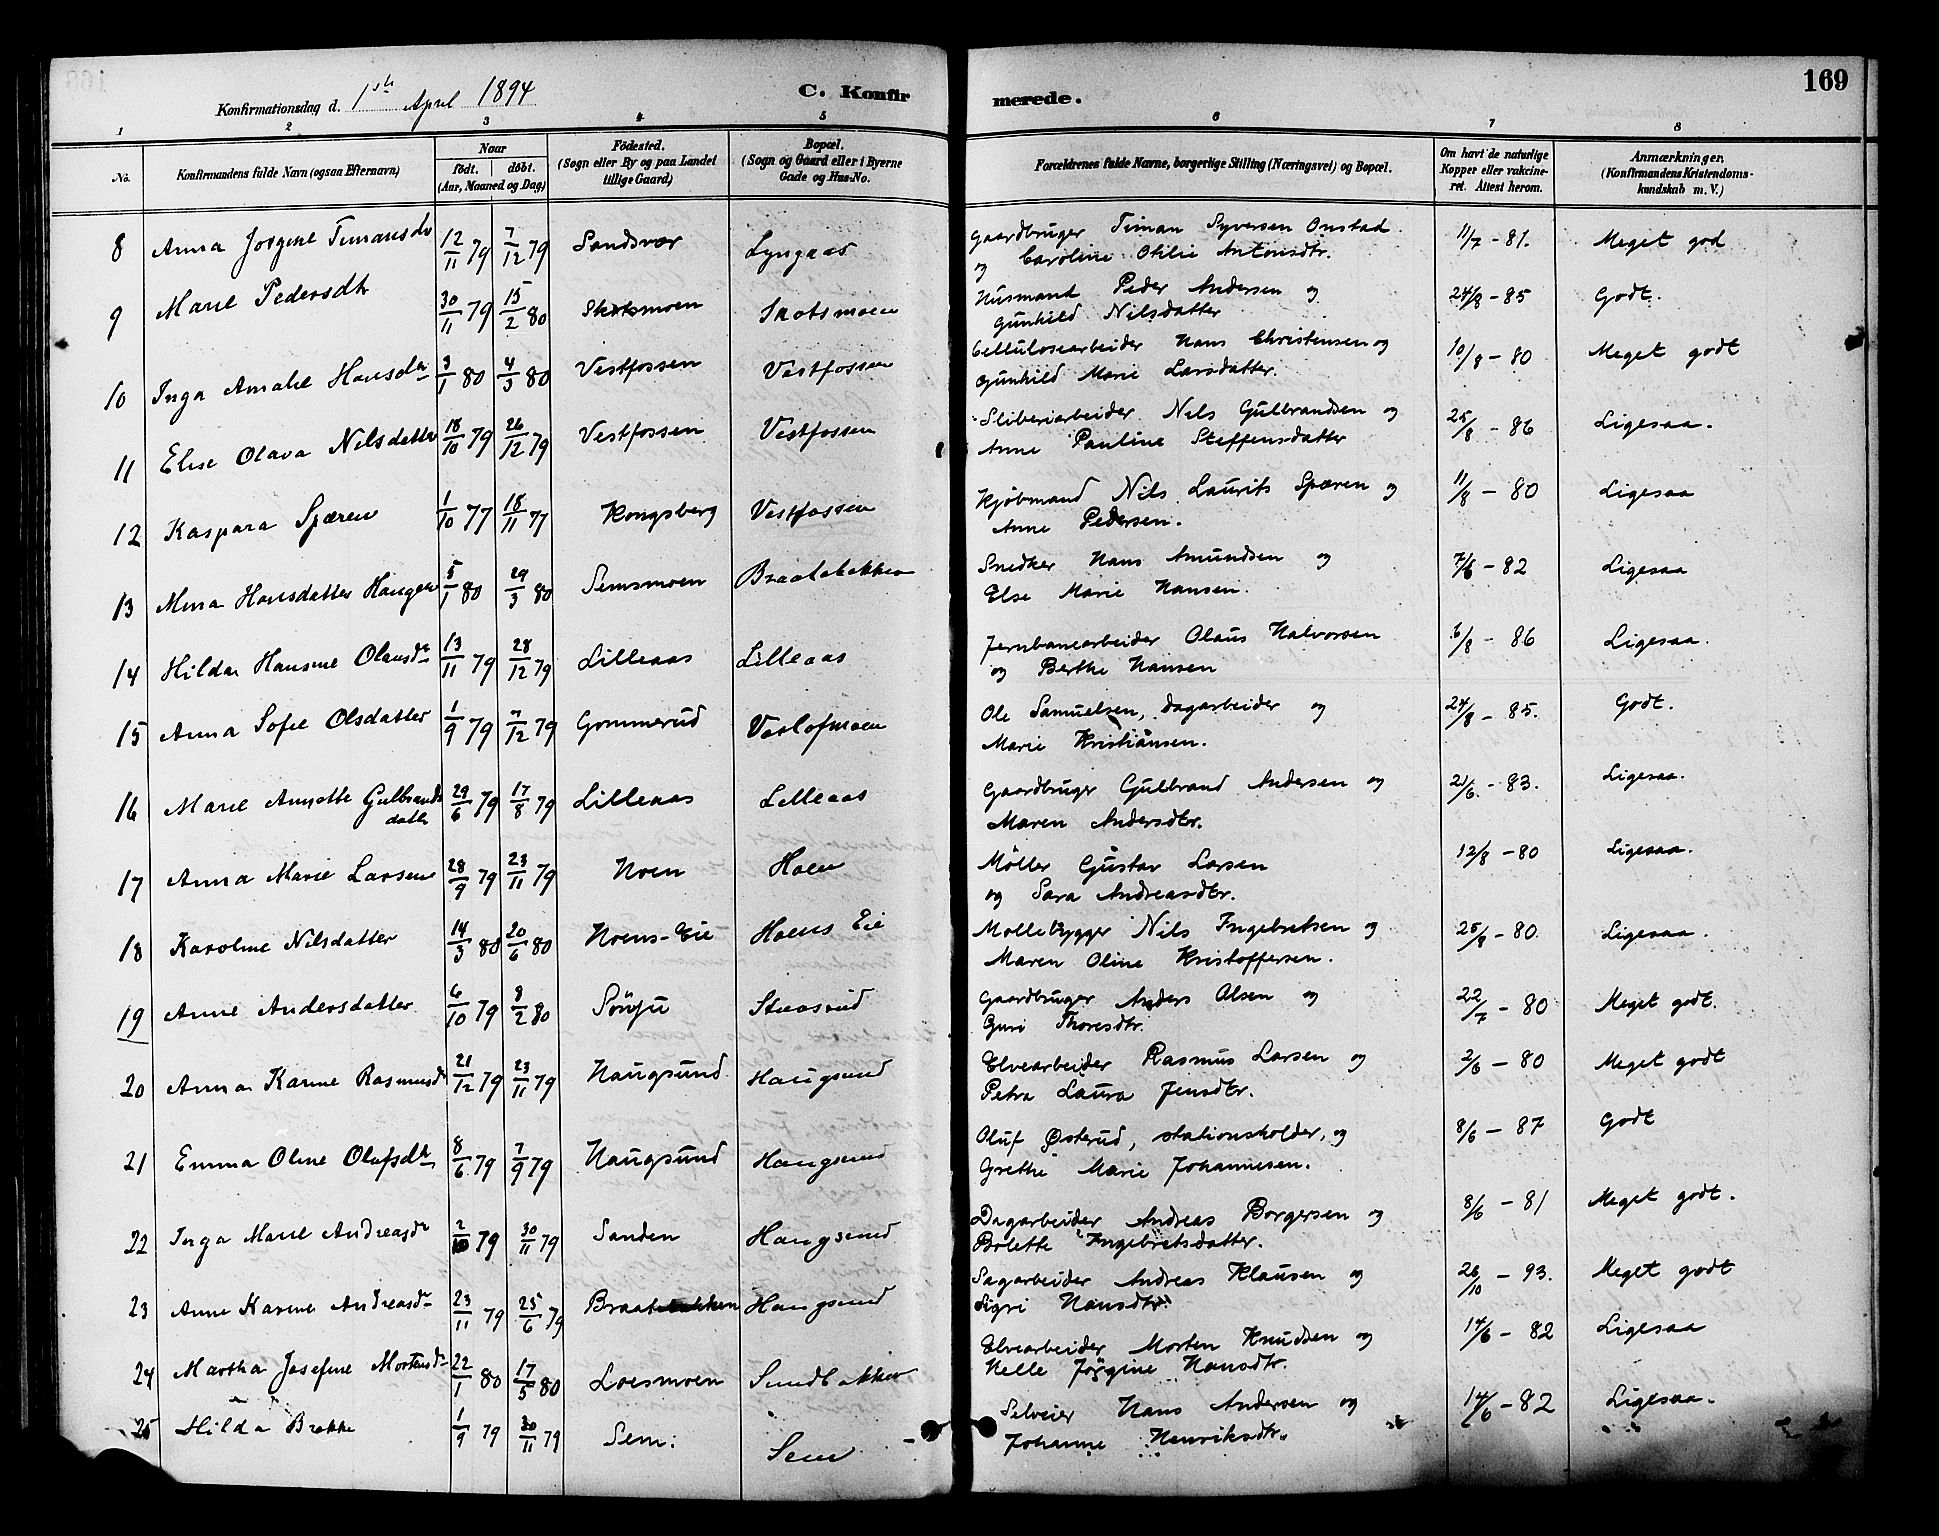 169
Konfirmationsdag d. 1ste April 1894
C. Konfirmerede.
1 2 3 4 5 6 7 8
No.
Konfirmandens fulde Navn (ogsaa Efternavn)
Naar født. døbt. (Aar, Maaned og Dag)
Födested. (Sogn eller By og paa Landet tillige Gaard)
Bopæl. (Sogn og Gaard eller i Byerne Gade og Hus-No.
Forældrenes fulde Navne, borgerlige Stilling (Næringsvei) og Bopæl.
Om havt de naturlige Kopper eller vakcineret. Attest herom.
Anmærkninger. (Konfirmandens Kristendomskundskab m. V.)
8 Anna Jørgine Timansdtr 12/11 79 7/12 79 Sandsvær Lyngaas Gaardbruger Timan Syversen Onstad
og Caroline Otilie Antonsdtr. 11/7 - 81. Meget god
9 Marie Pedersdtr 30/11 79 15/2 80 Skotsmoen Skotsmoen Husmand Peder Andersen og
Gunhild Nilsdatter 24/8 - 85 Godt.
10 Inga Amalie Hansdtr 3/1 80 4/3 80 Vestfossen Vestfossen Cellulosearbeider Hans Christensen og
Gunhild Marie Larsdatter. 10/8 - 80 Meget godt
11 Elise Olava Nilsdatter 18/10 79 26/12 79 Vestfossen Vestfossen Sliberiarbeider Nils Gulbrandsen og
Anne Pauline Steffensdatter 25/8 - 86 Ligesaa.
12 Kaspara Spæren 1/10 77 18/11 77 Kongsberg Vestfossen Kjøbmand Nils Laurits Spæren og
Anne Pedersen. 11/8 - 80 Ligesaa
13 Mina Hansdatter Haugen 5/1 80 29/3 80 Semsmoen Braatabakken Snedker Hans Amundsen og
Else Marie Hansen. 7/6 - 82 Ligesaa
14 Hilda Hansine Olausdtr 13/11 79 28/12 79 Lilleaas Lilleaas Jernbanearbeider Olaus Halvorsen
og Berthe Hansen 6/8 - 86 Ligesaa.
15 Anna Sofie Olsdatter 1/9 79 7/12 79 Gommerud Ole Samuelsen, dagarbeider og
Marie Kristiansen. 24/8 - 85. Godt.
16 Marie Annette Gulbrands
datter 29/6 79 17/8 79 Lilleaas Lilleaas Gaardbruger Gulbrand Andersen og
Maren Andersdtr. 21/6. - 83. Ligesaa.
17 Anna Marie Larsen 28/9 79 23/11 79 Hoen Hoen Möller Gustav Larsen
og Sara Andreasdtr. 12/8 - 80 Ligesaa.
18 Karoline Nilsdatter 14/3 80 20/6 80 Hoens-Eie Hoens Eie Møllebygger Nils Ingebretsen og
Maren Oline Kristoffersen. 25/8 - 80. Ligesaa.
19 Anne Andersdatter 6/10 79 8/2 80 Staasrud Gaardbruger Anders Olsen og
Guri Thoresdtr. 22/7 - 80 Meget godt.
20 Anna Karine Rasmusdtr 21/12 79 23/11 79 Haugsund Haugsund Elvearbeider Rasmus Larsen og
Petra Laura Jensdtr. 2/6 - 80 Meget godt
21 Emma Oline Olufsdtr 8/6 79 7/9 79 Haugsund Haugsund Oluf Østerud, stationsholder, og
Grethe Marie Johannesen. 8/6 - 87 Godt
22 Inga Marie Andreasdtr 2/10 79 30/11 79 Sanden Haugsund Dagarbeider Andreas Borgersen og
Bolette Ingebretsdatter. 8/6 - 81 Meget godt.
23 Anne Karine Andreasdtr 23/11 79 25/6 79 Braatabakken Haugsund Sagarbeider Andreas Klausen og
Sigri Hansdtr. 26/10 - 93. Meget godt
24 Martha Josefine Mortensdtr 22/1 80 17/5 80 Loesmoen Sundbakken Elvearbeider Morten Knudsen og
Helle Jørgine Hansdtr. 14/6 - 82 Ligesaa
25 Hilda Brekke 1/9 79 30/11 79 Sem. Sem Selveier Hans Andersen og
Johanne Henriksdtr. 14/6 - 82 Ligesaa.